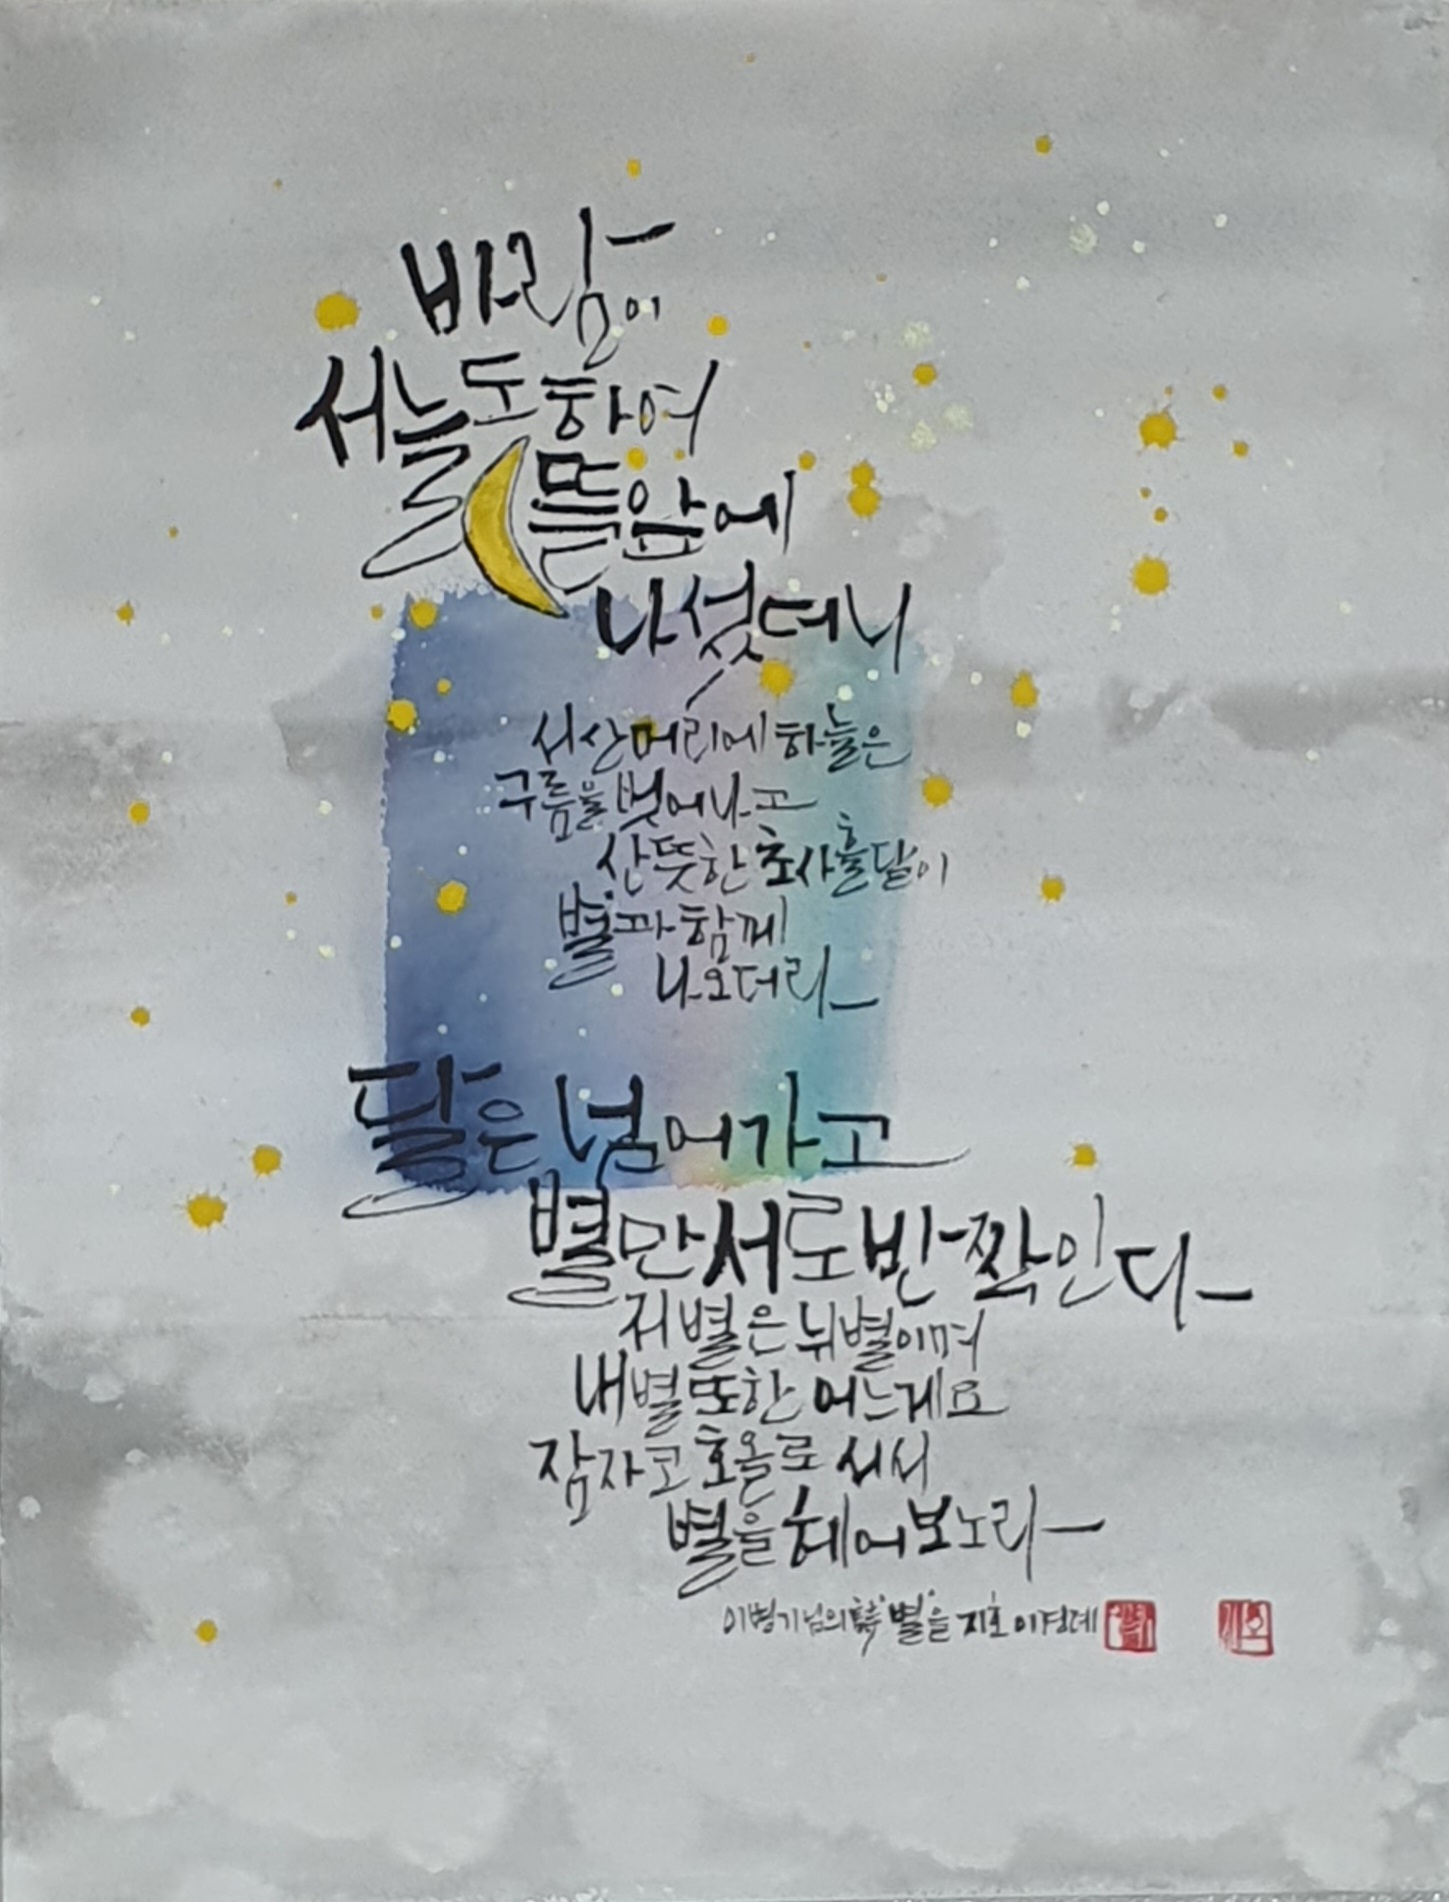 바람이
서늘도하여
뜰앞에
나섯더니
서산머리에 하늘은
구름을 벗어나고
산뜻한 초사흘달이
별과 함께
나오더라
달은 넘어가고
별만 서로 반짝인다
저 별은 뉘별이며
내별 또한 어느게요
잠자코 호올로 서서
별을 헤어보노라
이병기님의 詩 "별"을 지호 이경데